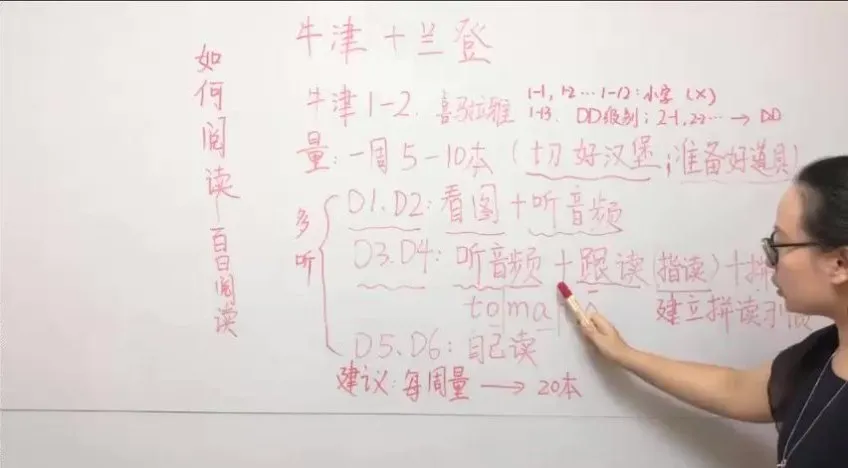 如何阅读
百日阅读
牛津+兰登
牛津1-2. 喜马拉雅 1-1, 1-2 … 1-12: 小字 (×)
1-13. DD级别; 2-1, 2-2 … → DD
量:一周5-10本(切好汉堡;准备好道具)
多听
D1.D2:看图+听音频
D3.D4:听音频+跟读(指读)+拼
to|ma|
建立拼读
D5.D6:自己读
建议:每周量→20本